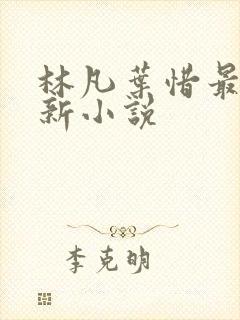 林凡葉惜最
新小說
李克明